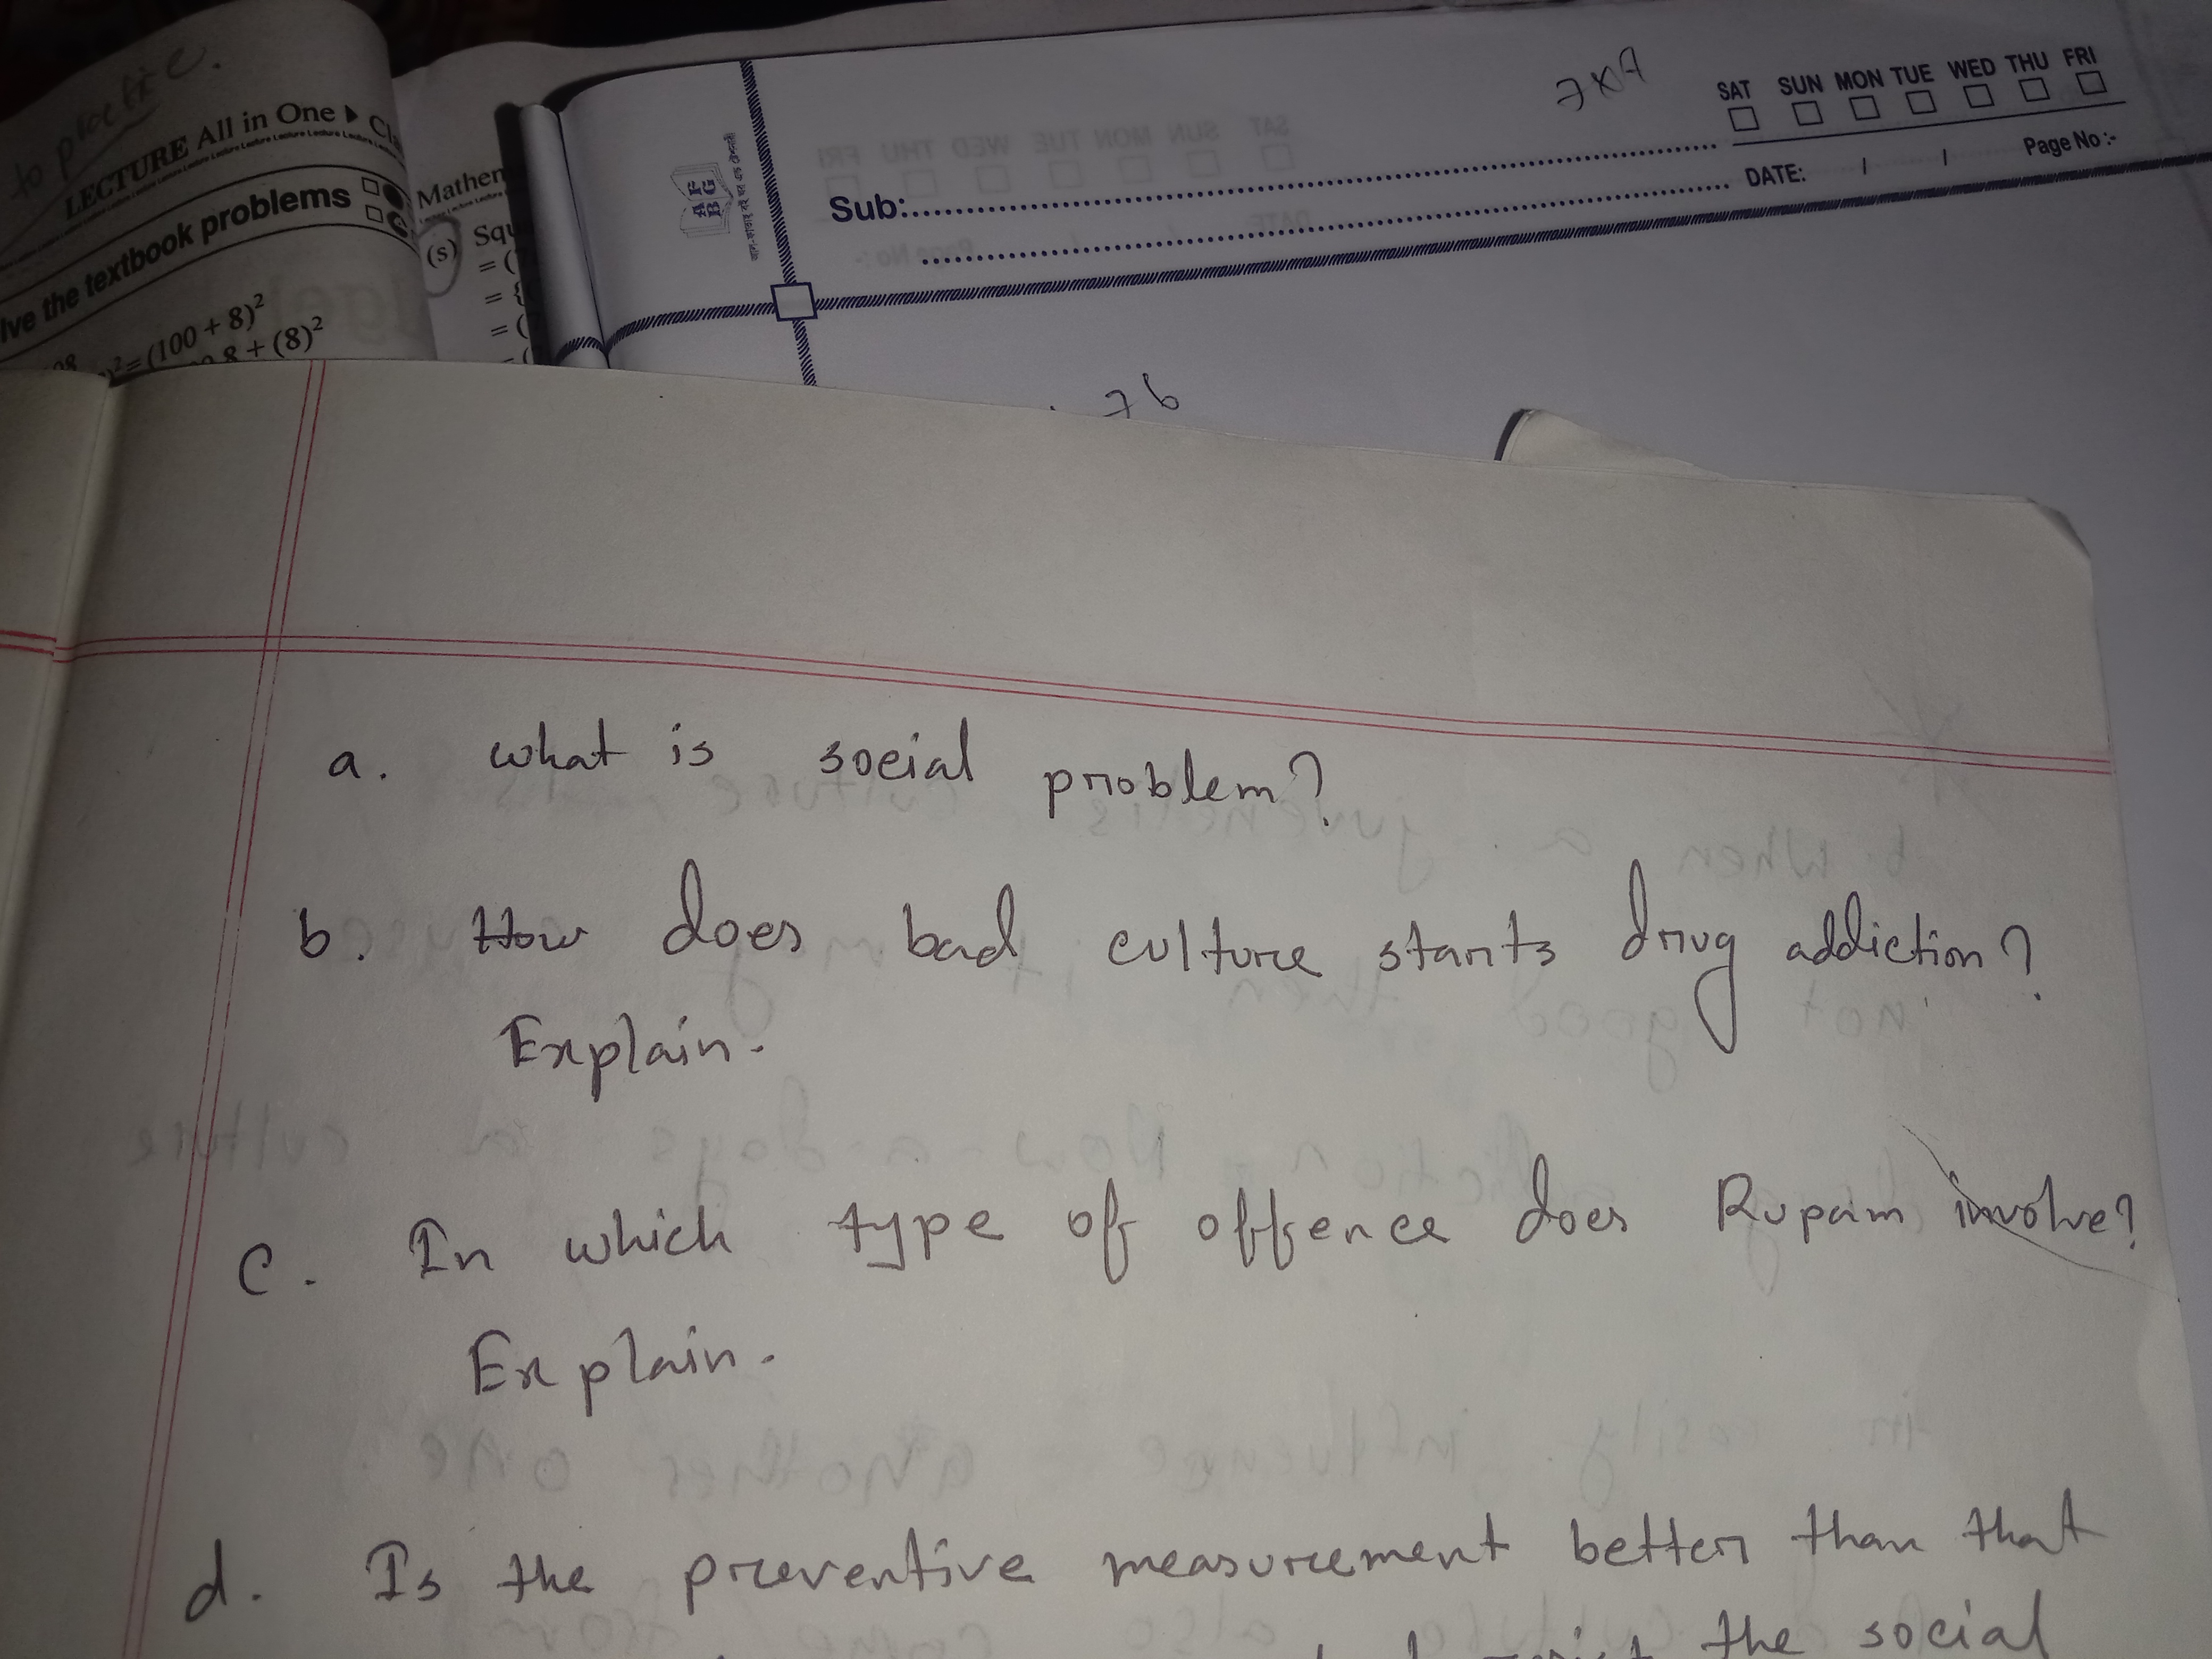 to practice.
LECTURE All in One
lve the textbook problems
= (100 + 8)²
8 + (8)²
Mathem
(s) Squ
= (
= {
= (
SAT SUN MON TUE WED THU FRI
Sub:
DATE: / /
Page No :-
a. what is social problem?
b. How does bad culture starts drug addiction?
Explain.
c. In which type of offence does Rupam involve?
Explain.
d. Is the preventive measurement better than that
the social